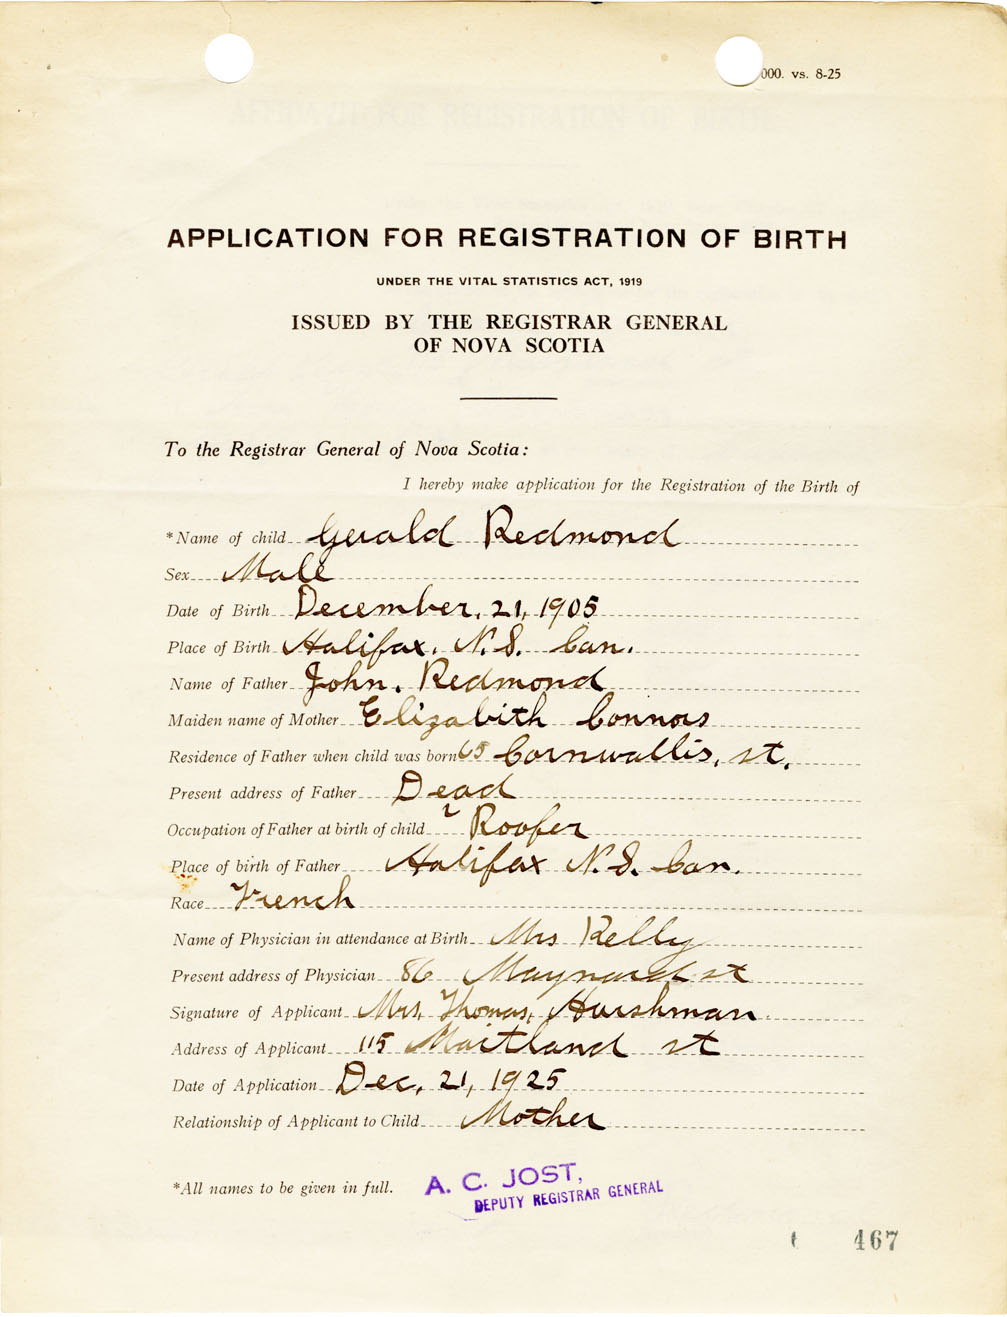 000. vs. 8-25
APPLICATION FOR REGISTRATION OF BIRTH
UNDER THE VITAL STATISTICS ACT, 1919
ISSUED BY THE REGISTRAR GENERAL
OF NOVA SCOTIA
To the Registrar General of Nova Scotia:
I hereby make application for the Registration of the Birth of
*Name of child Gerald Redmond
Sex Male
Date of Birth December, 21, 1905
Place of Birth Halifax, N.S. Can.
Name of Father John. Redmond
Maiden name of Mother Elizabith Connors
Residence of Father when child was born 65 Cornwallis, st.
Present address of Father Dead
Occupation of Father at birth of child Roofer
Place of birth of Father Halifax N.S. Can.
Race French
Name of Physician in attendance at Birth Mrs Kelly
Present address of Physician 86 Maynard st
Signature of Applicant Mrs, Thomas, Harshman
Address of Applicant 115 Maitland st
Date of Application Dec, 21, 1925
Relationship of Applicant to Child Mother
*All names to be given in full.
A. C. JOST,
DEPUTY REGISTRAR GENERAL
467